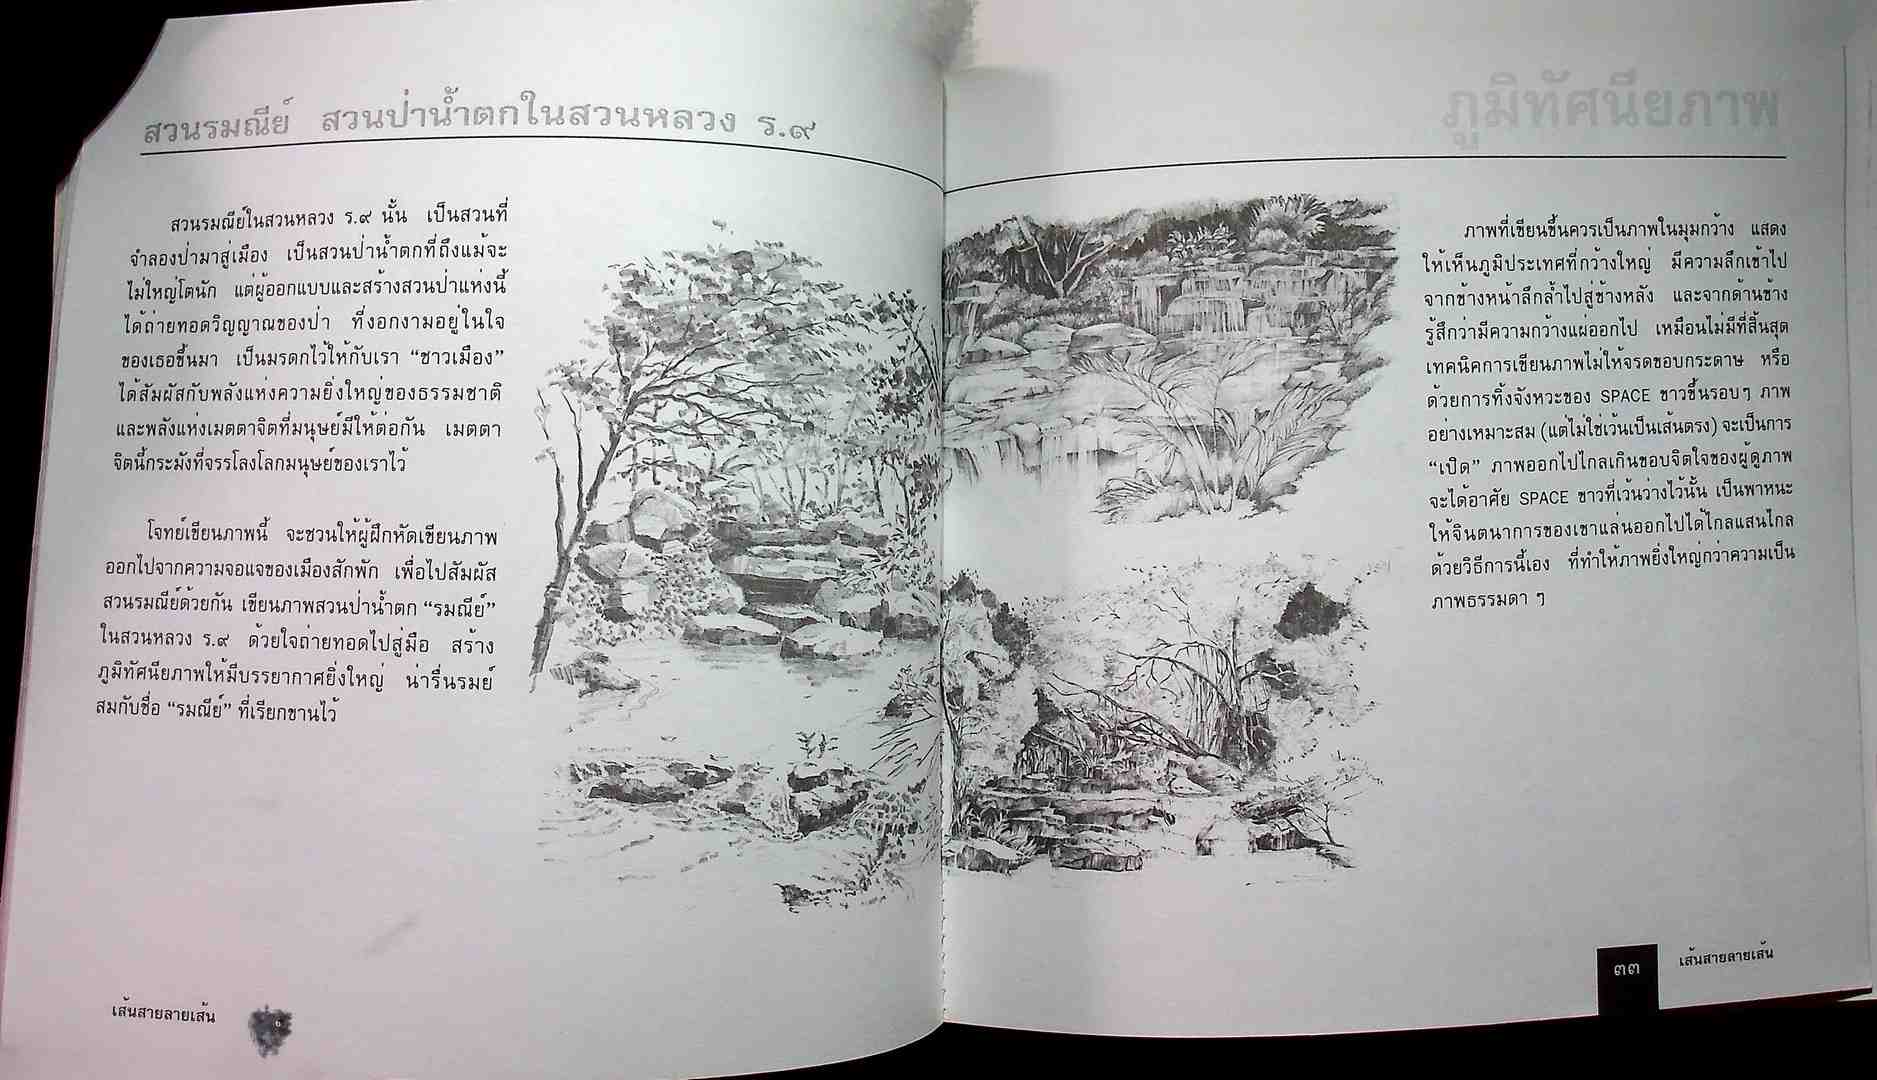 สวนรมณีย์ สวนป่าน้ำตกในสวนหลวง ร.๙
สวนรมณีย์ในสวนหลวง ร.๙ นั้น เป็นสวนที่
จำลองป่ามาสู่เมือง เป็นสวนป่าน้ำตกที่ถึงแม้จะ
ไม่ใหญ่โตนัก แต่ผู้ออกแบบและสร้างสวนป่าแห่งนี้
ได้ถ่ายทอดวิญญาณของป่า ที่งอกงามอยู่ในใจ
ของเธอขึ้นมา เป็นมรดกไว้ให้กับเรา “ชาวเมือง”
ได้สัมผัสกับพลังแห่งความยิ่งใหญ่ของธรรมชาติ
และพลังแห่งเมตตาจิตที่มนุษย์มีให้ต่อกัน เมตตา
จิตนี้กระมังที่จรรโลงโลกมนุษย์ของเราไว้
โจทย์เขียนภาพนี้ จะชวนให้ผู้ฝึกหัดเขียนภาพ
ออกไปจากความจอแจของเมืองสักพัก เพื่อไปสัมผัส
สวนรมณีย์ด้วยกัน เขียนภาพสวนป่าน้ำตก “รมณีย์”
ในสวนหลวง ร.๙ ด้วยใจถ่ายทอดไปสู่มือ สร้าง
ภูมิทัศนียภาพให้มีบรรยากาศยิ่งใหญ่ น่ารื่นรมย์
สมกับชื่อ “รมณีย์” ที่เรียกขานไว้
เส้นสายลายเส้น
ภูมิทัศนียภาพ
ภาพที่เขียนขึ้นควรเป็นภาพในมุมกว้าง แสดง
ให้เห็นภูมิประเทศที่กว้างใหญ่ มีความลึกเข้าไป
จากข้างหน้าลึกล้ำไปสู่ข้างหลัง และจากด้านข้าง
รู้สึกว่ามีความกว้างแผ่ออกไป เหมือนไม่มีที่สิ้นสุด
เทคนิคการเขียนภาพไม่ให้จรดขอบกระดาษ หรือ
ด้วยการทิ้งจังหวะของ SPACE ขาวขึ้นรอบๆ ภาพ
อย่างเหมาะสม (แต่ไม่ใช่เว้นเป็นเส้นตรง) จะเป็นการ
“เปิด” ภาพออกไปไกลเกินขอบจิตใจของผู้ดูภาพ
จะได้อาศัย SPACE ขาวที่เว้นว่างไว้นั้น เป็นพาหนะ
ให้จินตนาการของเขาแล่นออกไปได้ไกลแสนไกล
ด้วยวิธีการนี้เอง ที่ทำให้ภาพยิ่งใหญ่กว่าความเป็น
ภาพธรรมดา ๆ
๓๓
เส้นสายลายเส้น